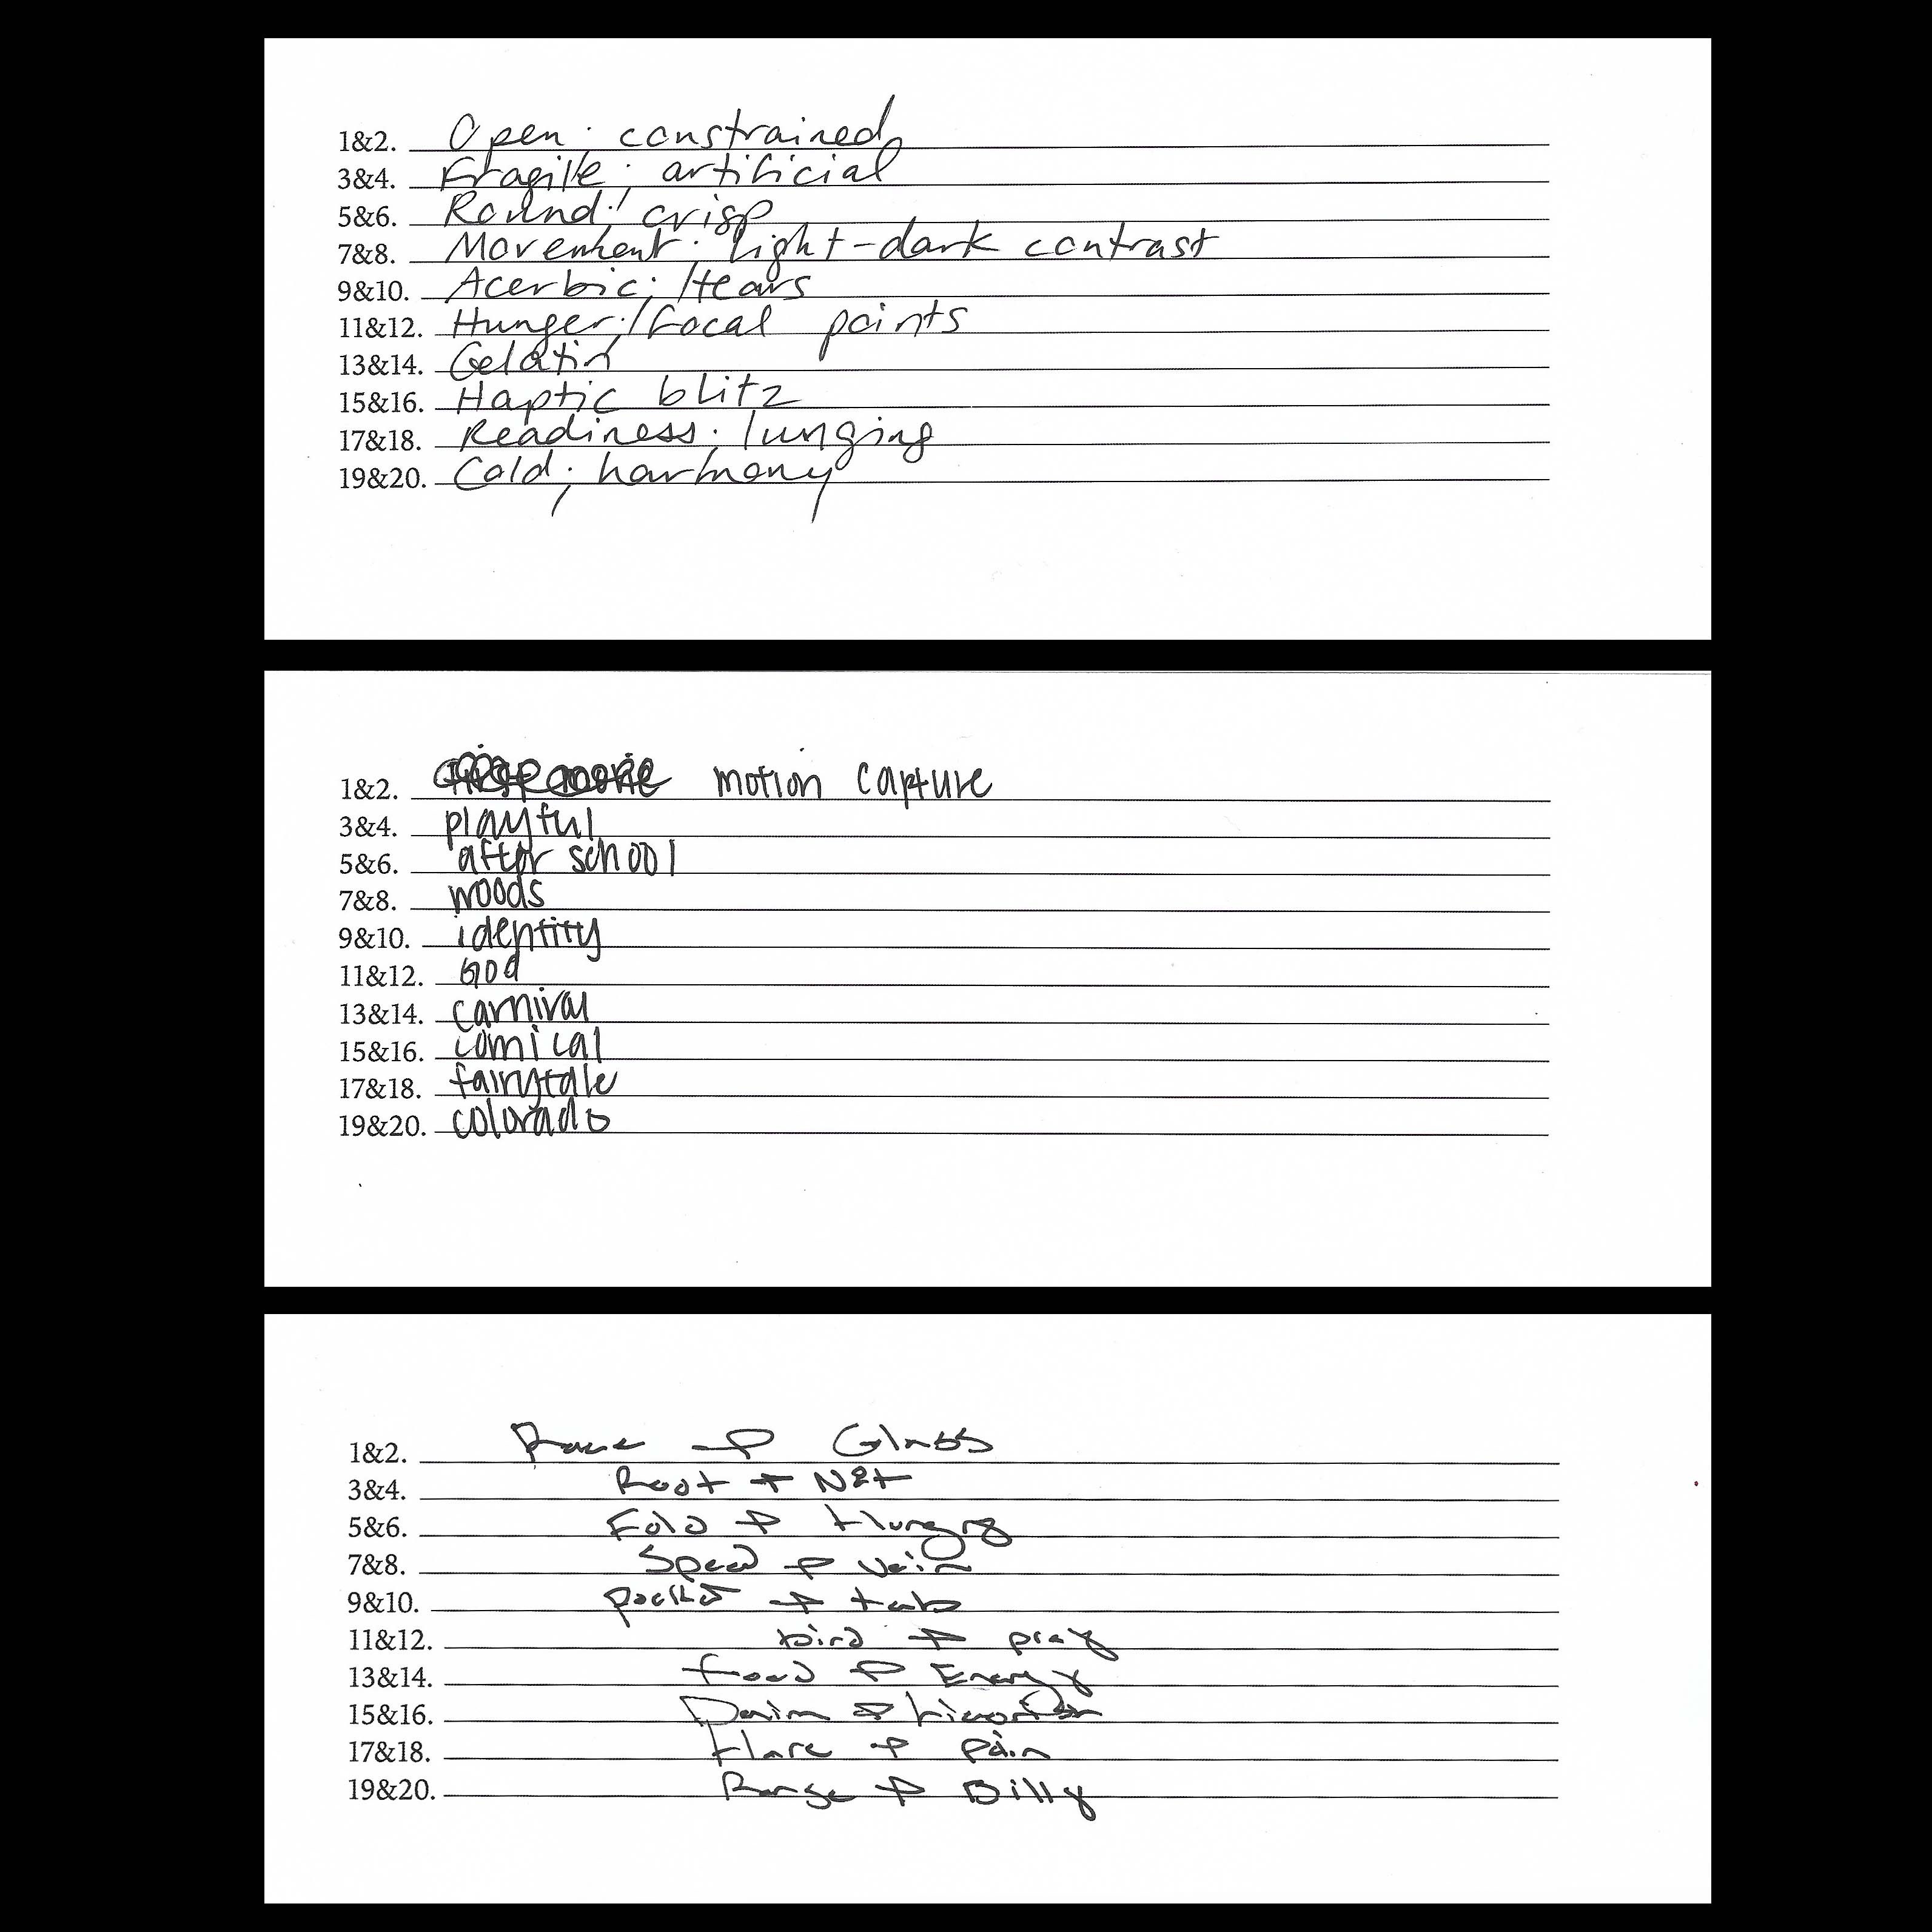 1&2. Open; constrained
3&4. Fragile; artificial
5&6. Round; crisp
7&8. Movement; light-dark contrast
9&10. Acerbic; tears
11&12. Hunger; focal points
13&14. Gelatin
15&16. Haptic blitz
17&18. Readiness; lunging
19&20. Cold; harmony
1&2. motion capture
3&4. playful
5&6. after school
7&8. woods
9&10. identity
11&12. God
13&14. carnival
15&16. comical
17&18. fairytale
19&20. colorado
1&2. + Glass
3&4. Root + Net
5&6. Fold + Hungry
7&8. Speed + vein
9&10. pocket + tab
11&12. bird + pray
13&14. food + Energy
15&16. Denim +
17&18. Flare + pain
19&20. Range + Billy